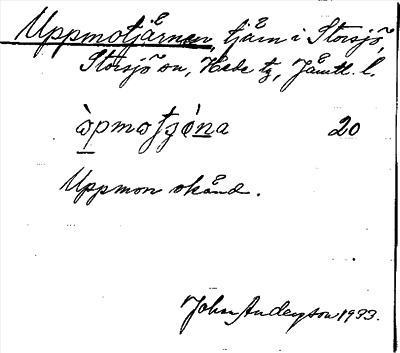 Uppmotjärnen, tjärn i Storsjö,
Storsjö sn, Hede tg, Jämtl. l.
ò̱pmotjó̱na 20
Uppmon okänd.
John Andersson 1933.